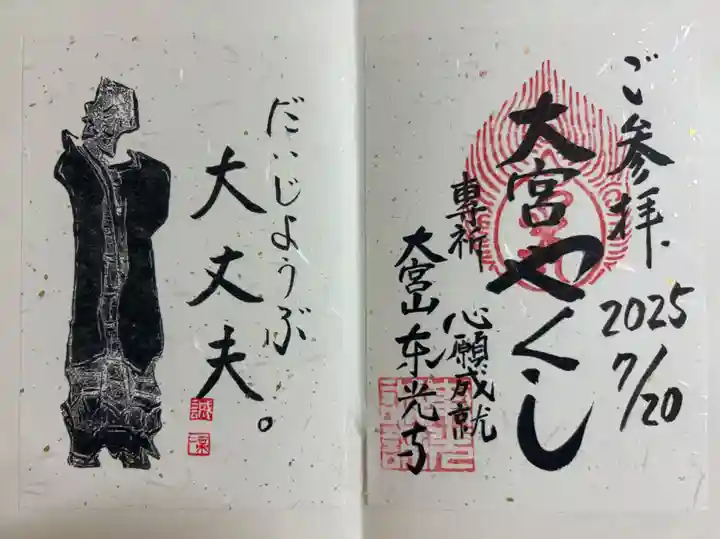 ご参拝.
2025
7/20
大宮やくし
専祈 心願成就
大宮山 东光寺
だいじようぶ
大丈夫。
誠